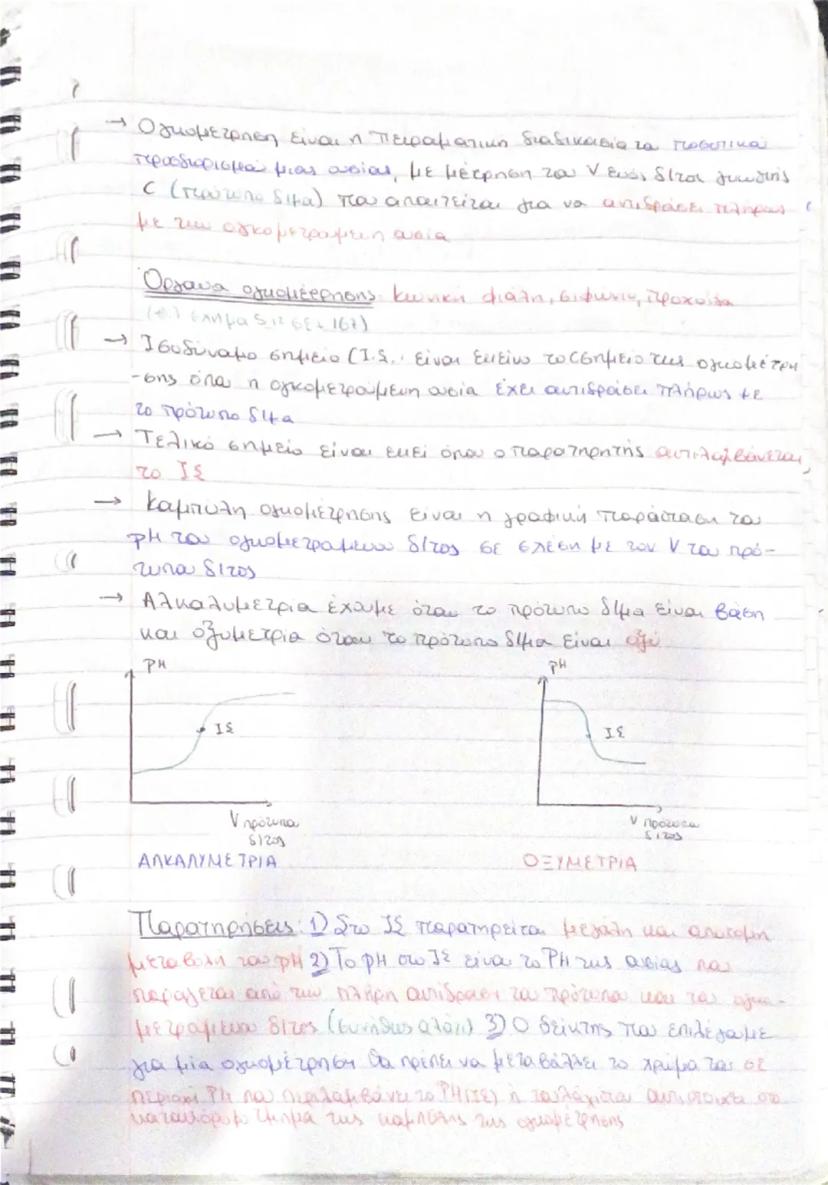 → Ογκομέτρηση είναι η πειραματική διαδικασία του ποσοτικού
προσδιορισμού μιας ουσίας, με μέτρηση του V ενός δ/τος γνωστής
C (πρότυπο δ/μα) που απαιτείται για να αντιδράσει πλήρως
με την ογκομετρούμενη ουσία
Όργανα ογκομέτρησης: Κωνική φιάλη, σιφώνιο, προχοΐδα
σχήμα 5.12 σελ 167)
→ Ισοδύναμο σημείο (Ι.Σ.: είναι εκείνο το σημείο της ογκομέτρη
-σης όπου η ογκομετρούμενη ουσία έχει αντιδράσει πλήρως με
το πρότυπο δ/μα
→ Τελικό σημείο είναι εκεί όπου ο παρατηρητής αντιλαμβάνεται
το ΙΣ
→ Καμπύλη ογκομέτρησης είναι η γραφική παράσταση του
pH του ογκομετρούμενου δ/τος σε σχέση με τον V του πρό-
τυπου δ/τος
→ Αλκαλυμετρία έχουμε όταν το πρότυπο δ/μα είναι βάση
και οξυμετρία όταν το πρότυπο δ/μα είναι οξύ
PH PH
ΙΣ ΙΣ
V πρότυπου V πρότυπου
δ/τος δ/τος
ΑΛΚΑΛΥΜΕΤΡΙΑ ΟΞΥΜΕΤΡΙΑ
Παρατηρήσεις: 1) Στο ΙΣ παρατηρείται μεγάλη και απότομη
μεταβολή του pH 2) Το pH στο ΙΣ είναι το PH της ουσίας που
παράγεται από την πλήρη αντίδραση του πρότυπου και του ογκο-
μετρούμενου δ/τος (συνήθως αλάτι) 3) Ο δείκτης που επιλέγουμε
για μία ογκομέτρηση θα πρέπει να μεταβάλλει το χρώμα του σε
περιοχή PH που περιλαμβάνει το PH(ΙΣ) ή τουλάχιστον αντιστοιχεί στο
κατακόρυφο τμήμα της καμπύλης της ογκομέτρησης